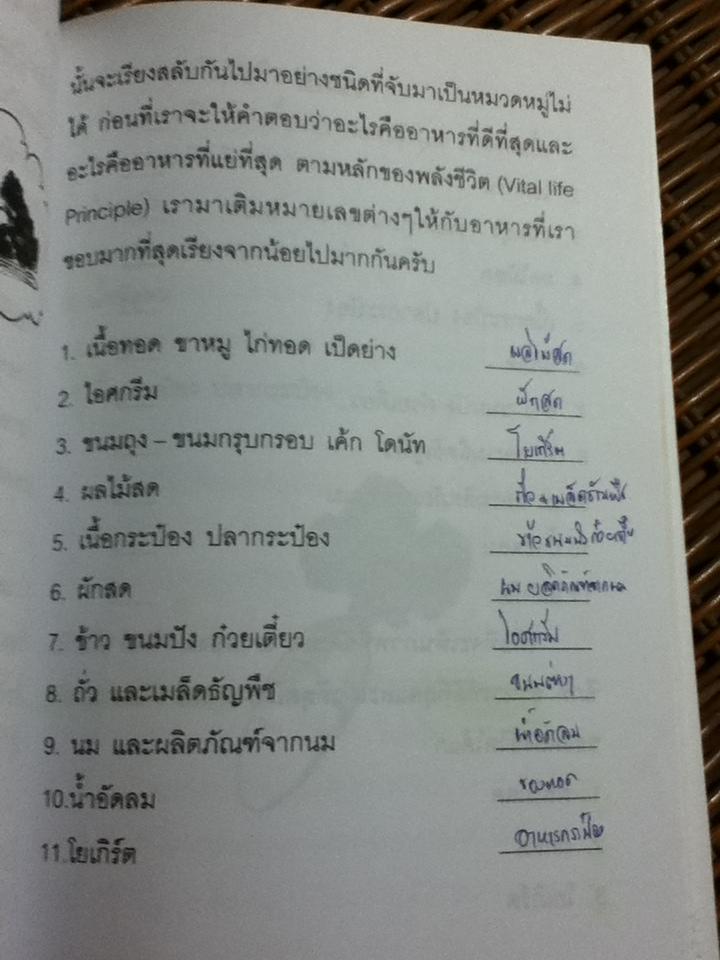 นั้นจะเรียงสลับกันไปมาอย่างชนิดที่จับมาเป็นหมวดหมู่ไม่
ได้ ก่อนที่เราจะให้คำตอบว่าอะไรคืออาหารที่ดีที่สุดและ
อะไรคืออาหารที่แย่ที่สุด ตามหลักของพลังชีวิต (Vital life
Principle) เรามาเติมหมายเลขต่างๆให้กับอาหารที่เรา
ชอบมากที่สุดเรียงจากน้อยไปมากกันครับ
1. เนื้อทอด ขาหมู ไก่ทอด เป็ดย่าง ผลไม้สด
2. ไอศกรีม ผักสด
3. ขนมถุง – ขนมกรุบกรอบ เค้ก โดนัท โยเกิร์ต
4. ผลไม้สด ถั่ว
5. เนื้อกระป๋อง ปลากระป๋อง ข้าว
6. ผักสด นม ผลิตภัณฑ์จากนม
7. ข้าว ขนมปัง ก๋วยเตี๋ยว ไอศกรีม
8. ถั่ว และเมล็ดธัญพืช ขนมต่างๆ
9. นม และผลิตภัณฑ์จากนม น้ำอัดลม
10.น้ำอัดลม ของทอด
11.โยเกิร์ต อาหารกระป๋อง